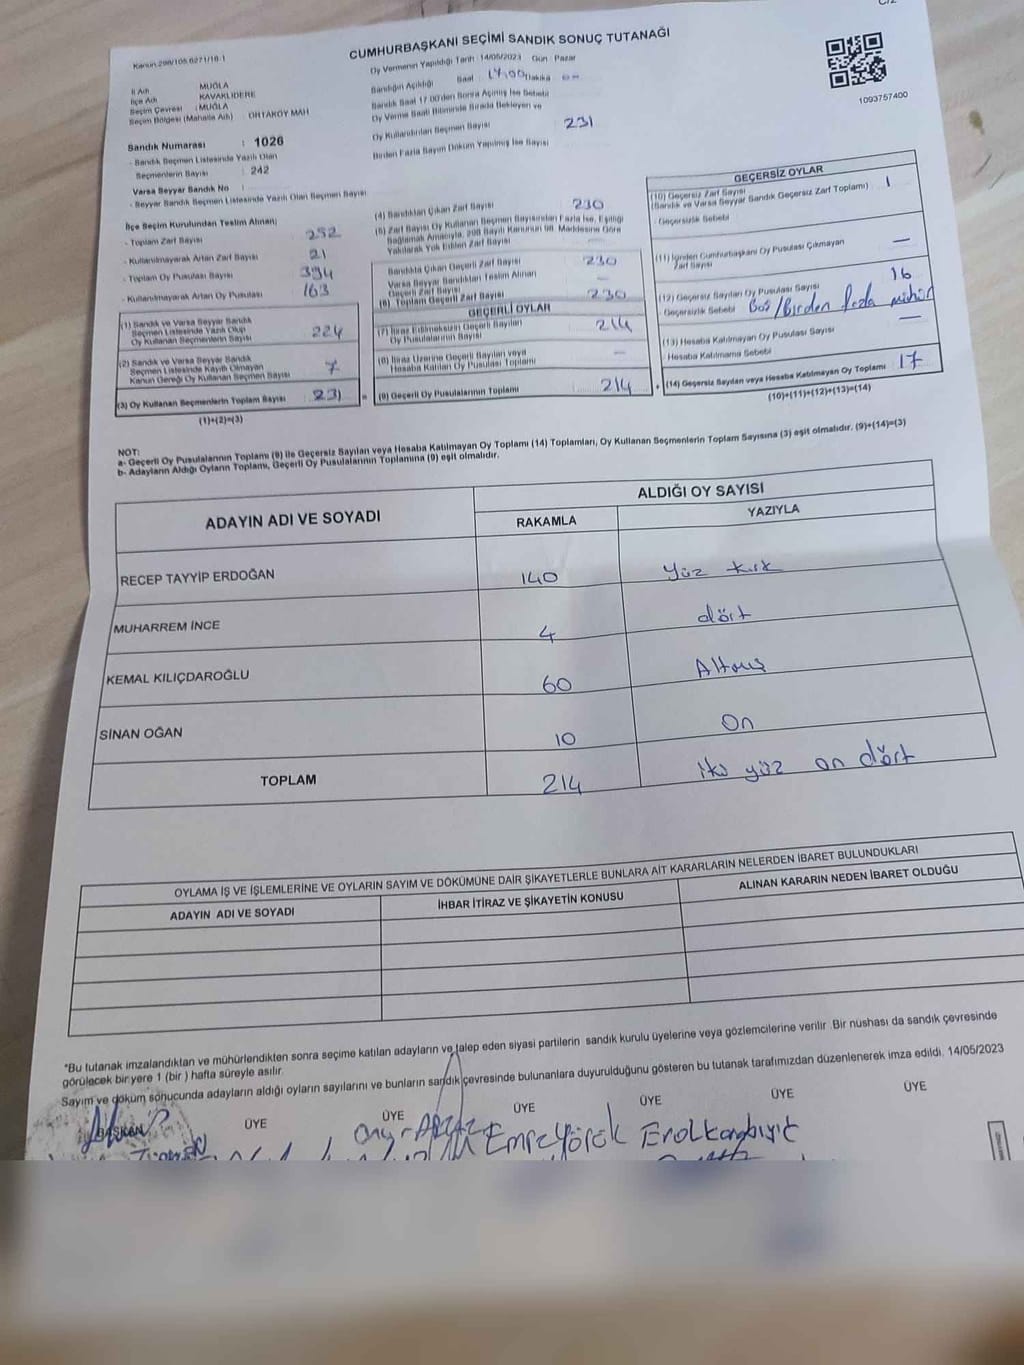 CUMHURBAŞKANI SEÇİMİ SANDIK SONUÇ TUTANAĞI
Oy Vermenin Yapıldığı Tarih :14/05/2023 Gün : Pazar
Sandığın Açıldığı Saat : 17,00 Dakika
Sandık Saat 17:00'den Sonra Açılmış İse Sebebi
Oy Verme Saati Bitiminde Sırada Bekleyen ve
Oy Kullandırılan Seçmen Sayısı 231
Birden Fazla Sayım Döküm Yapılmış İse Sayısı
1093757400
İl Adı MUĞLA
İlçe Adı KAVAKLIDERE
Seçim Çevresi :MUĞLA
Seçim Bölgesi (Mahalle Adı) : ORTAKÖY MAH
Sandık Numarası : 1026
- Sandık Seçmen Listesinde Yazılı Olan
Seçmenlerin Sayısı : 242
Varsa Seyyar Sandık No :
- Seyyar Sandık Seçmen Listesinde Yazılı Olan Seçmen Sayısı
İlçe Seçim Kurulundan Teslim Alınan;
- Toplam Zarf Sayısı 252
- Kullanılmayarak Artan Zarf Sayısı 21
- Toplam Oy Pusulası Sayısı 394
- Kullanılmayarak Artan Oy Pusulası 163
(1) Sandık ve Varsa Seyyar Sandık
Seçmen Listesinde Yazılı Olup
Oy Kullanan Seçmenlerin Sayısı 224
(2) Sandık ve Varsa Seyyar Sandık
Seçmen Listesinde Kayıtlı Olmayan
Kanun Gereği Oy Kullanan Seçmen Sayısı 7
(3) Oy Kullanan Seçmenlerin Toplam Sayısı 231
(1)+(2)=(3)
(4) Sandıktan Çıkan Zarf Sayısı 230
(5) Zarf Sayısı Oy Kullanan Seçmen Sayısından Fazla İse, Eşitliği
Sağlamak Amacıyla, 298 Sayılı Kanunun 98. Maddesine Göre
Yakılarak Yok Edilen Zarf Sayısı —
Sandıkta Çıkan Geçerli Zarf Sayısı 230
Varsa Seyyar Sandıktan Teslim Alınan
Geçerli Zarf Sayısı —
(6) Toplam Geçerli Zarf Sayısı 230
GEÇERLİ OYLAR
(7) İtiraz Edilmeksizin Geçerli Sayılan
Oy Pusulalarının Sayısı 214
(8) İtiraz Üzerine Geçerli Sayılan veya
Hesaba Katılan Oy Pusulası Toplamı —
(9) Geçerli Oy Pusulalarının Toplamı 214
GEÇERSİZ OYLAR
(10) Geçersiz Zarf Sayısı
(Sandık ve Varsa Seyyar Sandık Geçersiz Zarf Toplamı) 1
- Geçersizlik Sebebi
(11) İçinden Cumhurbaşkanı Oy Pusulası Çıkmayan
Zarf Sayısı —
(12) Geçersiz Sayılan Oy Pusulası Sayısı 16
Geçersizlik Sebebi Boş/Birden fazla mühür
(13) Hesaba Katılmayan Oy Pusulası Sayısı —
- Hesaba Katılmama Sebebi
(14) Geçersiz Sayılan veya Hesaba Katılmayan Oy Toplamı 17
(10)+(11)+(12)+(13)=(14)
NOT:
a- Geçerli Oy Pusulalarının Toplamı (9) ile Geçersiz Sayılan veya Hesaba Katılmayan Oy Toplamı (14) Toplamları, Oy Kullanan Seçmenlerin Toplam Sayısına (3) eşit olmalıdır. (9)+(14)=(3)
b- Adayların Aldığı Oyların Toplamı, Geçerli Oy Pusulalarının Toplamına (9) eşit olmalıdır.
ADAYIN ADI VE SOYADI
ALDIĞI OY SAYISI
RAKAMLA YAZIYLA
RECEP TAYYİP ERDOĞAN 140 Yüz kırk
MUHARREM İNCE 4 dört
KEMAL KILIÇDAROĞLU 60 Altmış
SİNAN OĞAN 10 On
TOPLAM 214 iki yüz on dört
OYLAMA İŞ VE İŞLEMLERİNE VE OYLARIN SAYIM VE DÖKÜMÜNE DAİR ŞİKAYETLERLE BUNLARA AİT KARARLARIN NELERDEN İBARET BULUNDUKLARI
ADAYIN ADI VE SOYADI İHBAR İTİRAZ VE ŞİKAYETİN KONUSU ALINAN KARARIN NEDEN İBARET OLDUĞU
*Bu tutanak imzalandıktan ve mühürlendikten sonra seçime katılan adayların ve talep eden siyasi partilerin sandık kurulu üyelerine veya gözlemcilerine verilir .Bir nüshası da sandık çevresinde
görülecek bir yere 1 (bir ) hafta süreyle asılır.
Sayım ve döküm sonucunda adayların aldığı oyların sayılarını ve bunların sandık çevresinde bulunanlara duyurulduğunu gösteren bu tutanak tarafımızdan düzenlenerek imza edildi. 14/05/2023
BAŞKAN ÜYE ÜYE ÜYE ÜYE ÜYE ÜYE
Emre Yörük